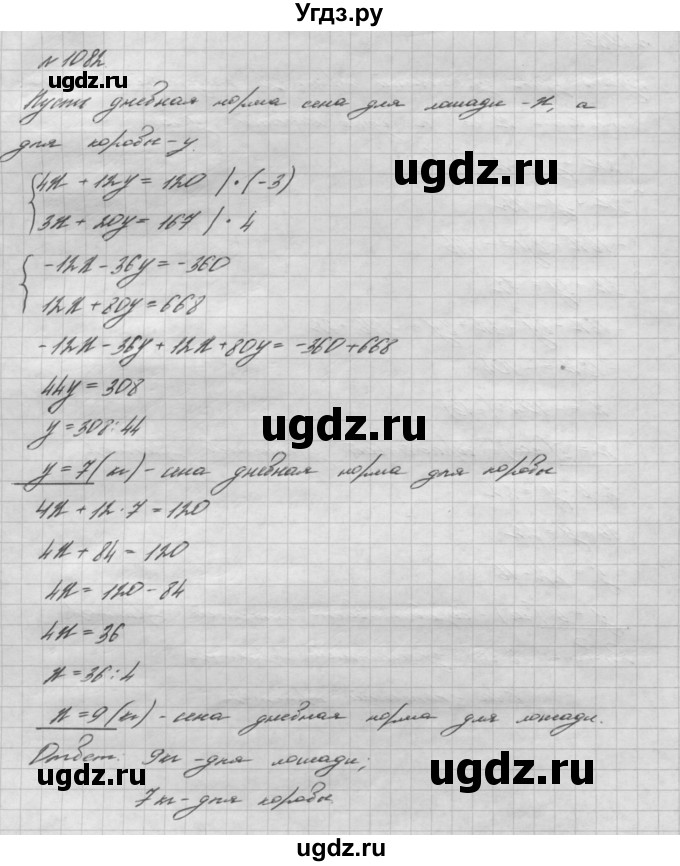 Угдз.ру
№ 1082
Пусть дневная норма сена для лошади - x, а
для коровы - y.
4x + 12y = 120 | · (-3)
ugdz.ru
3x + 20y = 167 | · 4
-12x - 36y = -360
12x + 80y = 668
-12x - 36y + 12x + 80y = -360 + 668
44y = 308
ugdz.ru
y = 308 : 44
y = 7 (кг) - сена дневная норма для коровы
4x + 12 · 7 = 120
4x + 84 = 120
4x = 120 - 84
4x = 36
x = 36 : 4
x = 9 (кг) - сена дневная норма для лошади.
Ответ: 9кг - для лошади;
ugdz.ru
ugdz.ru
7 кг - для коровы
ugdz.ru